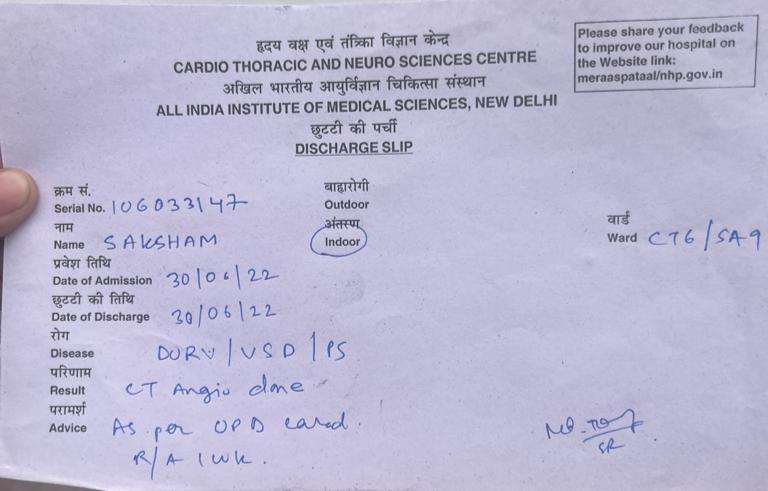 हृदय वक्ष एवं तंत्रिका विज्ञान केन्द्र
CARDIO THORACIC AND NEURO SCIENCES CENTRE
अखिल भारतीय आयुर्विज्ञान चिकित्सा संस्थान
ALL INDIA INSTITUTE OF MEDICAL SCIENCES, NEW DELHI
छुटटी की पर्ची
DISCHARGE SLIP
Please share your feedback
to improve our hospital on
the Website link:
meraaspataal/nhp.gov.in
क्रम सं.
Serial No. 106033147
बाह्यरोगी
Outdoor
नाम
Name SAKSHAM
अंतरण
Indoor
वार्ड
Ward CT6/SA9
प्रवेश तिथि
Date of Admission 30/06/22
छुटटी की तिथि
Date of Discharge 30/06/22
रोग
Disease DORV/VSD/PS
परिणाम
Result CT Angio done
परामर्श
Advice As per OPD card.
R/A 1 WK.
SR